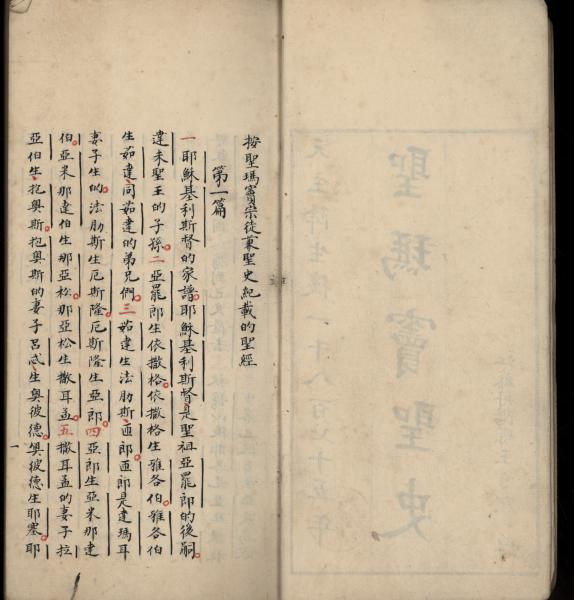 按聖瑪竇宗徒兼聖史紀載的聖經
第一篇
一耶穌基利斯督的家譜耶穌基利斯督是聖祖亞罷郎的後嗣
達未聖王的子孫二亞罷郎生依撒格依撒格生雅各伯雅各伯
生茹達同茹達的弟兄們三茹達生法肋斯匝郎匝郎是達瑪耳
妻子生的法肋斯生厄斯隆厄斯隆生亞郎四亞郎生亞米那達
伯亞米那達伯生那亞松那亞松生撒耳孟五撒耳孟的妻子拉
亞伯生抱奧斯抱奧斯的妻子呂忒生奧彼德奧彼德生耶塞耶
一
聖瑪竇聖史
天主降生後一千八百七十五年